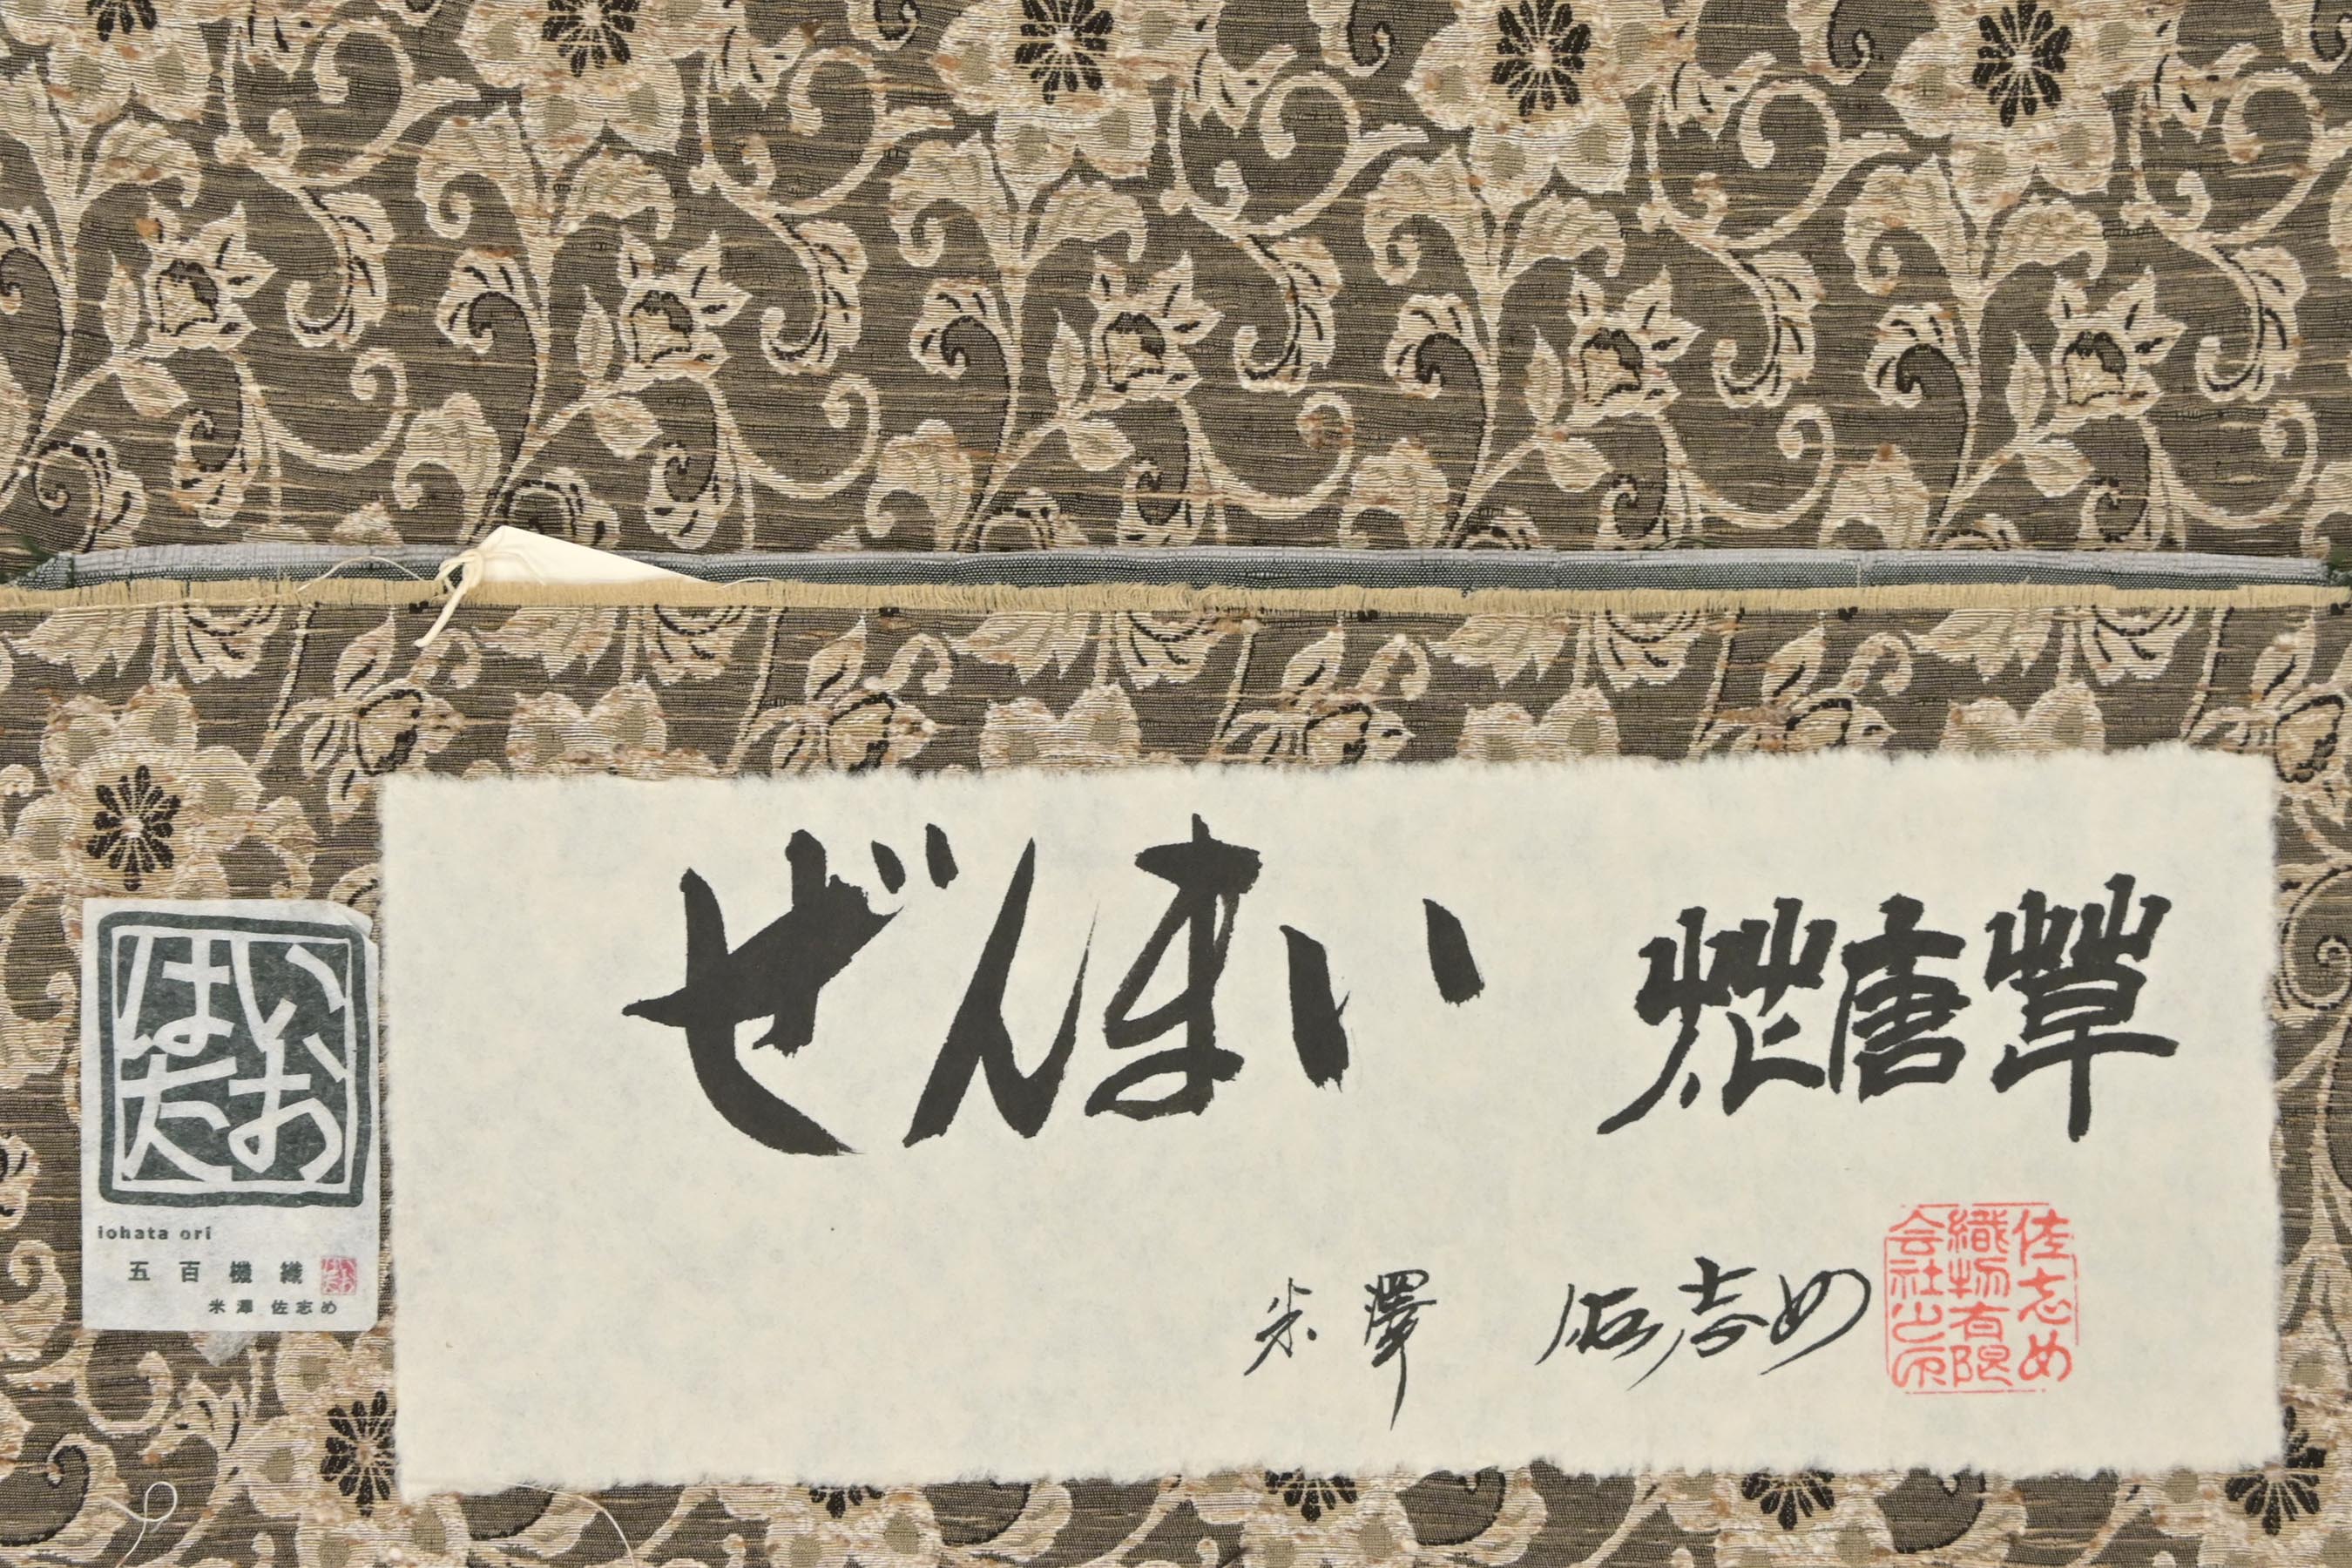 ぜんまい 花唐草
米澤 佐志め
佐志め
織物有限
会社之印
いお
はた
iohata ori
五百機織
米澤 佐志め